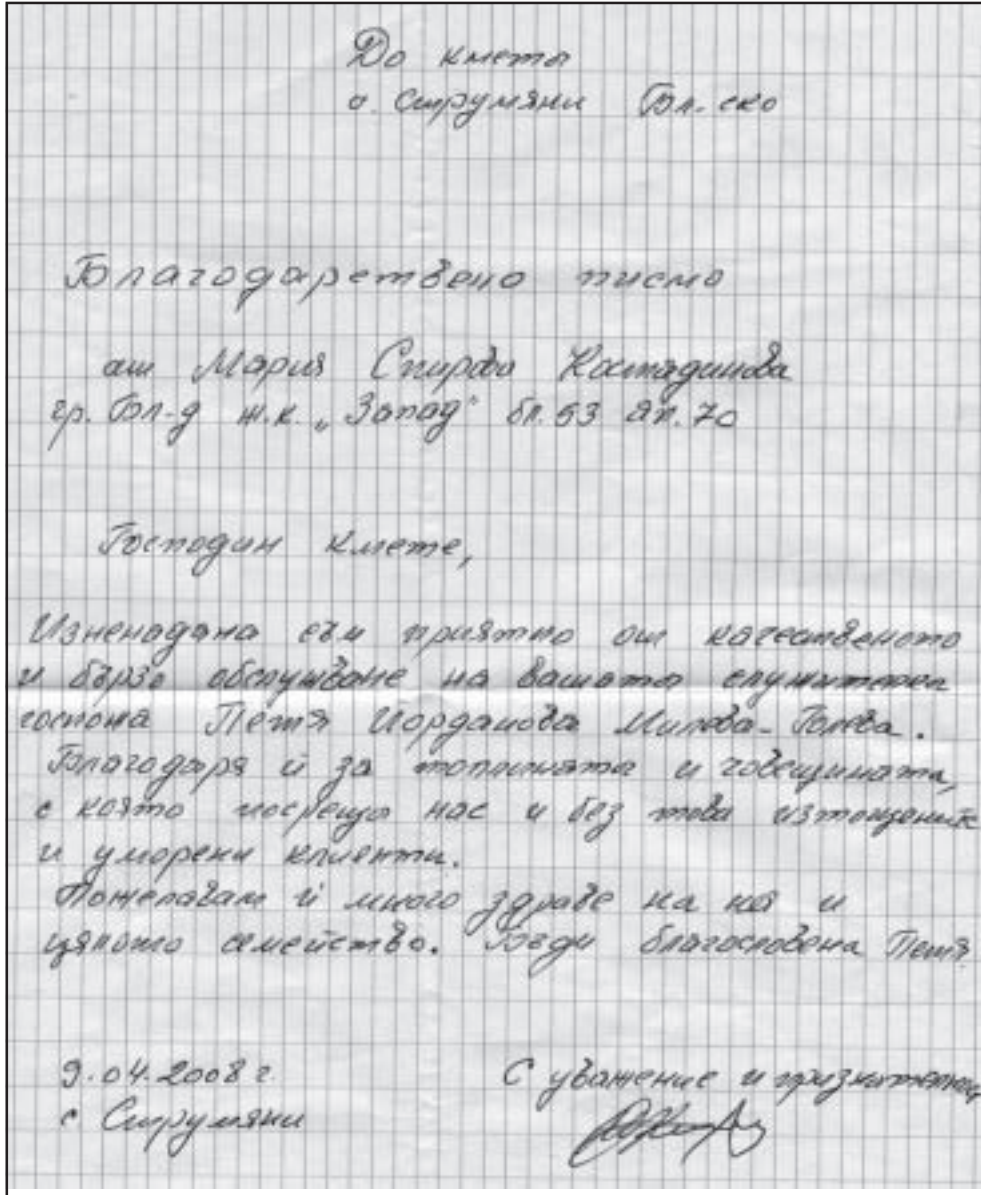 До кмета
о. Струмяни Бл. ско
Благодарствено писмо
от Мария Спирова Костадинова
гр. Бл-д ж.к. „Запад" бл. 53 ап. 70
Господин Кмете,
Изненадана съм приятно от качественото
и бързо обслужване на вашата служителка
госпожа Петя Йорданова Милева-Голева.
Благодаря й за топлината и човещината,
с която посреща нас и без това изтощените
и уморени клиенти.
Пожелавам й много здраве на нея и
цялото семейство. Бъди благословена Петя.
9.04.2008 г. С уважение и признателност,
с Струмяни